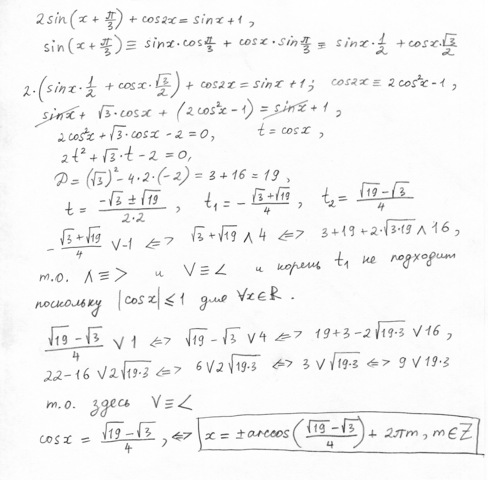 2sin(x + π/3) + cos2x = sinx + 1,
sin(x + π/3) ≡ sinx·cosπ/3 + cosx·sinπ/3 ≡ sinx·1/2 + cosx·√3/2
2·(sinx·1/2 + cosx·√3/2) + cos2x = sinx + 1; cos2x ≡ 2cos²x - 1,
sinx + √3·cosx + (2cos²x - 1) = sinx + 1,
2cos²x + √3·cosx - 2 = 0, t = cosx,
2t² + √3·t - 2 = 0,
D = (√3)² - 4·2·(-2) = 3 + 16 = 19,
t = (-√3 ± √19)/(2·2), t₁ = -(√3+√19)/4, t₂ = (√19-√3)/4
-(√3+√19)/4 ∨ -1 <=> √3+√19 ∧ 4 <=> 3+19+2·√3·19 ∧ 16,
т.о. ∧ ≡ > и ∨ ≡ < и корень t₁ не подходит
поскольку |cosx| ≤ 1 для ∀x∈ℝ.
(√19-√3)/4 ∨ 1 <=> √19-√3 ∨ 4 <=> 19+3-2√19·3 ∨ 16,
22-16 ∨ 2√19·3 <=> 6 ∨ 2√19·3 <=> 3 ∨ √19·3 <=> 9 ∨ 19·3
т.о. здесь ∨ ≡ <
cosx = (√19-√3)/4, <=> x = ±arccos((√19-√3)/4) + 2πm, m∈ℤ